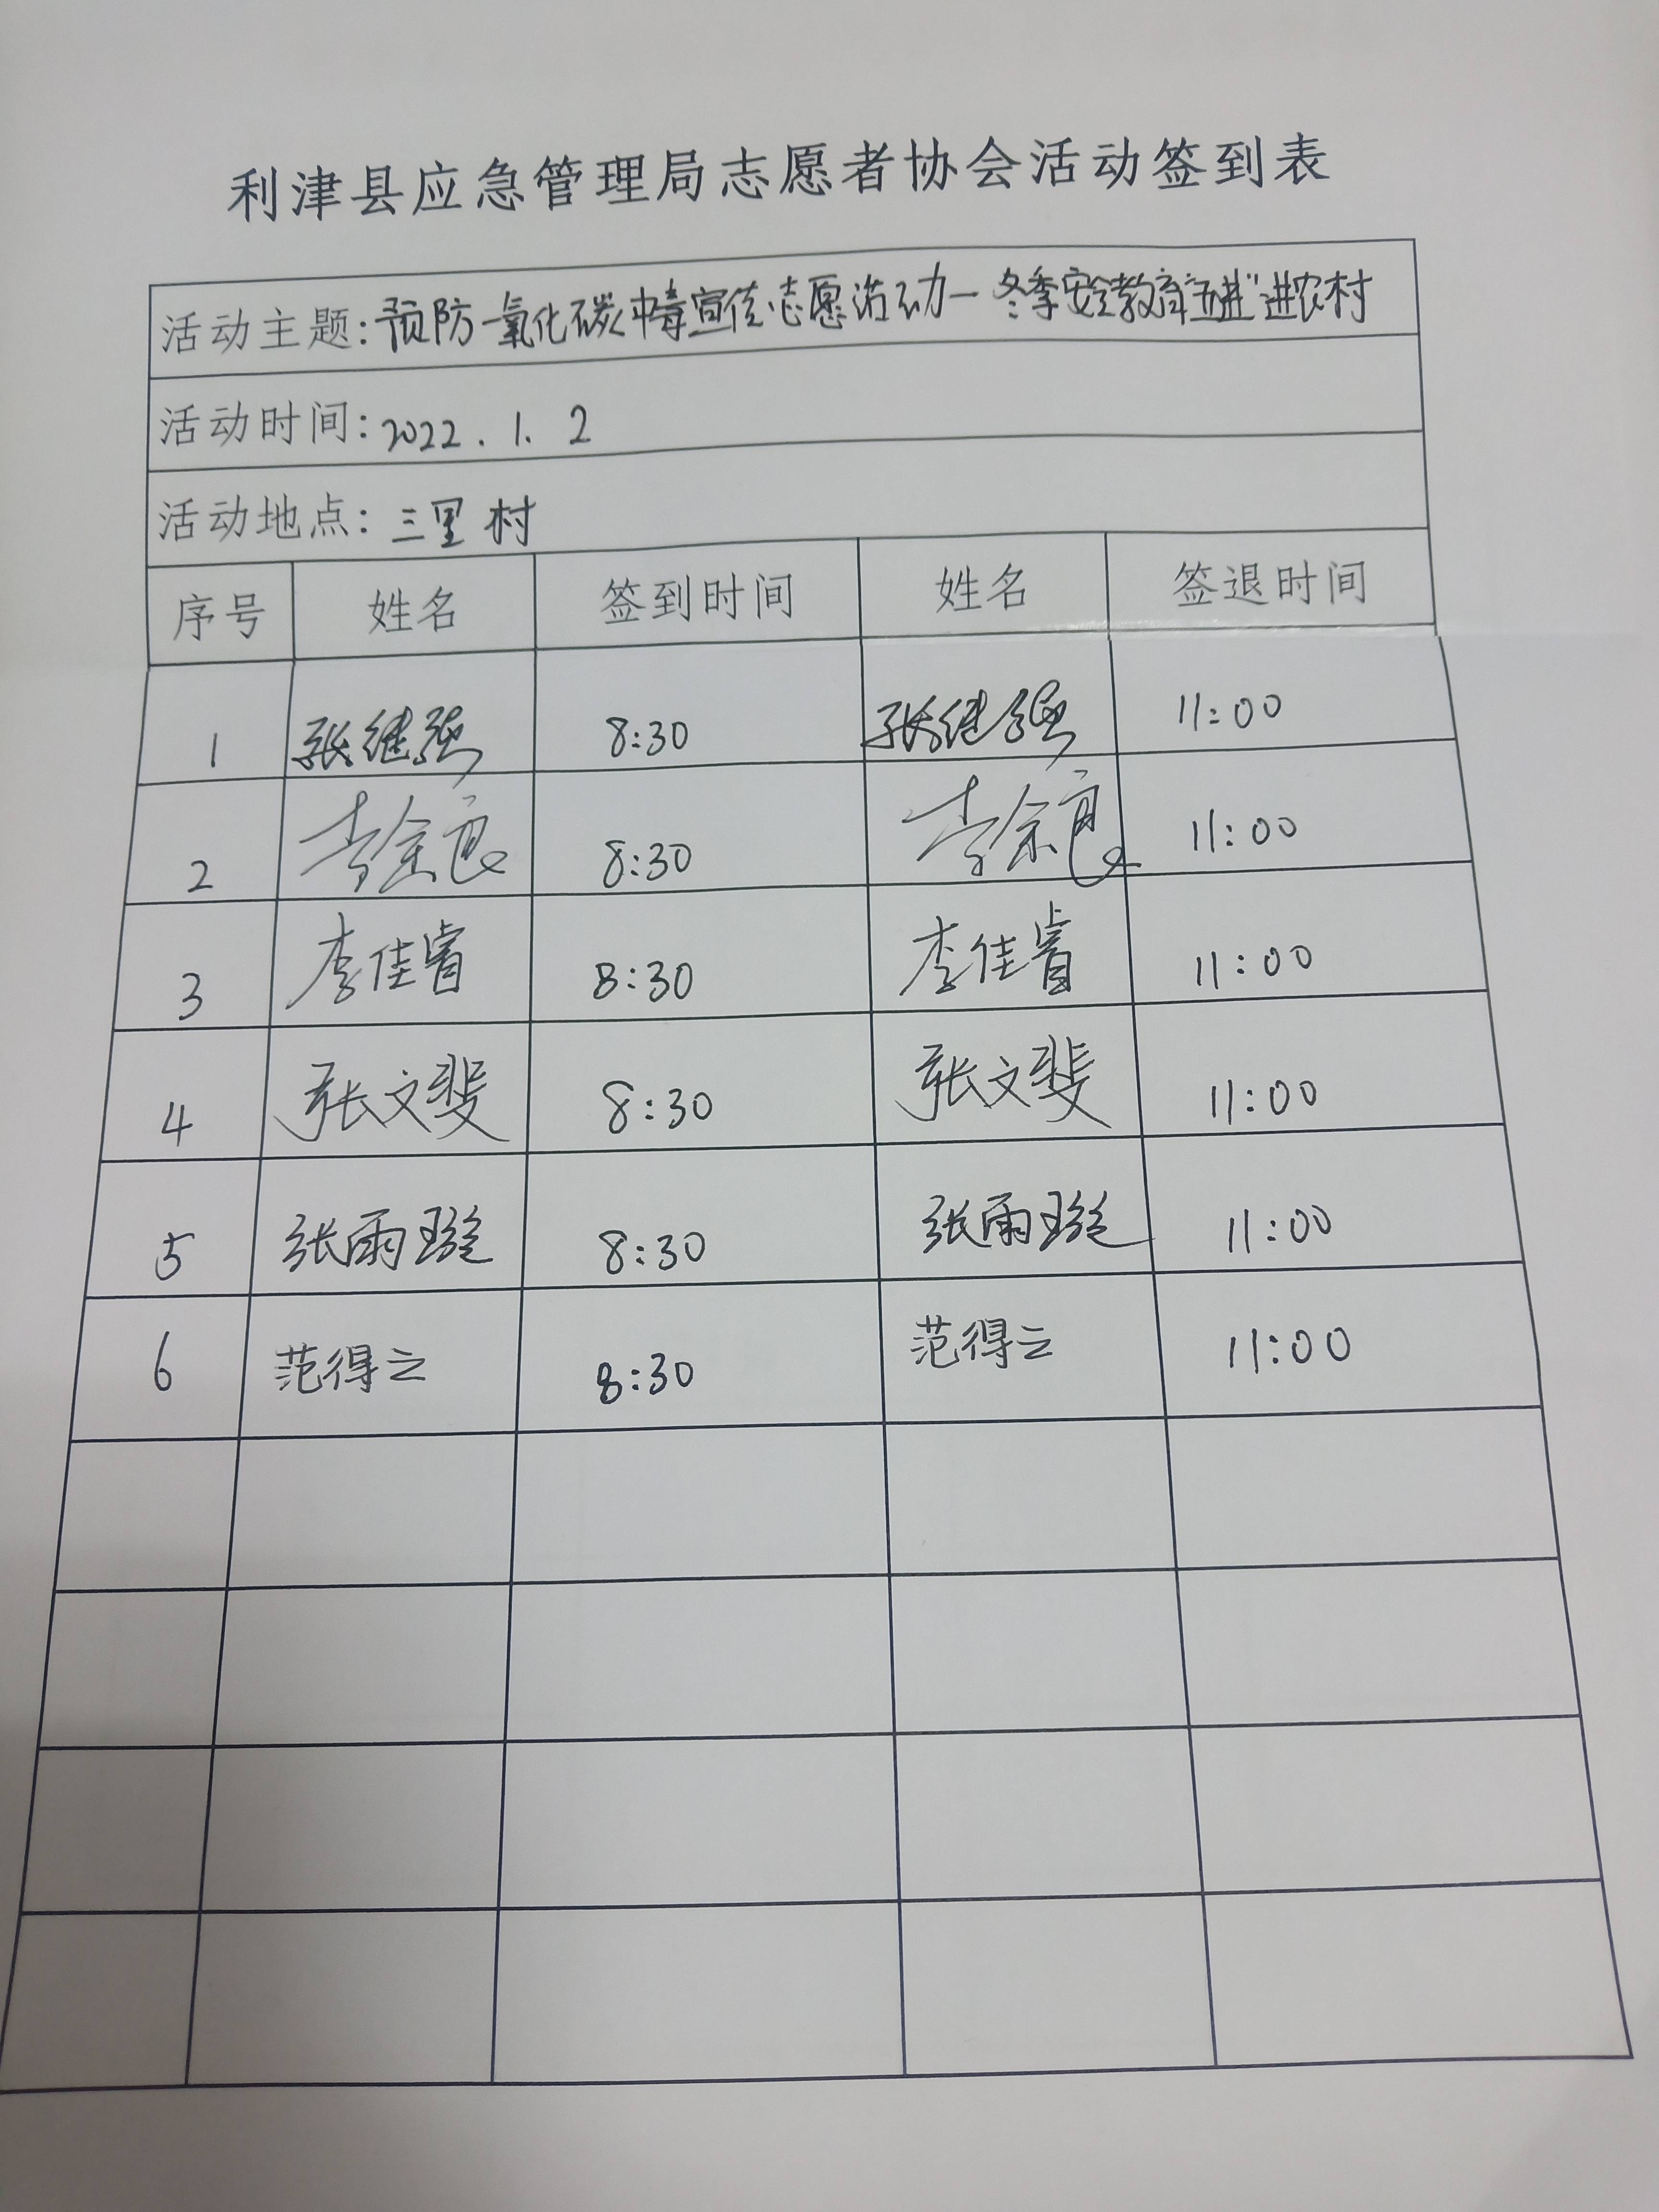 利津县应急管理局志愿者协会活动签到表
活动主题:预防一氧化碳中毒宣传志愿活动—冬季安全教育"五进"进农村
活动时间:2022.1.2
活动地点:三里村
序号 姓名 签到时间 姓名 签退时间
1 张继强 8:30 张继强 11:00
2 李金良 8:30 李余良 11:00
3 李佳睿 8:30 李佳睿 11:00
4 张文斐 8:30 张文斐 11:00
5 张雨璇 8:30 张雨璇 11:00
6 范得之 8:30 范得之 11:00